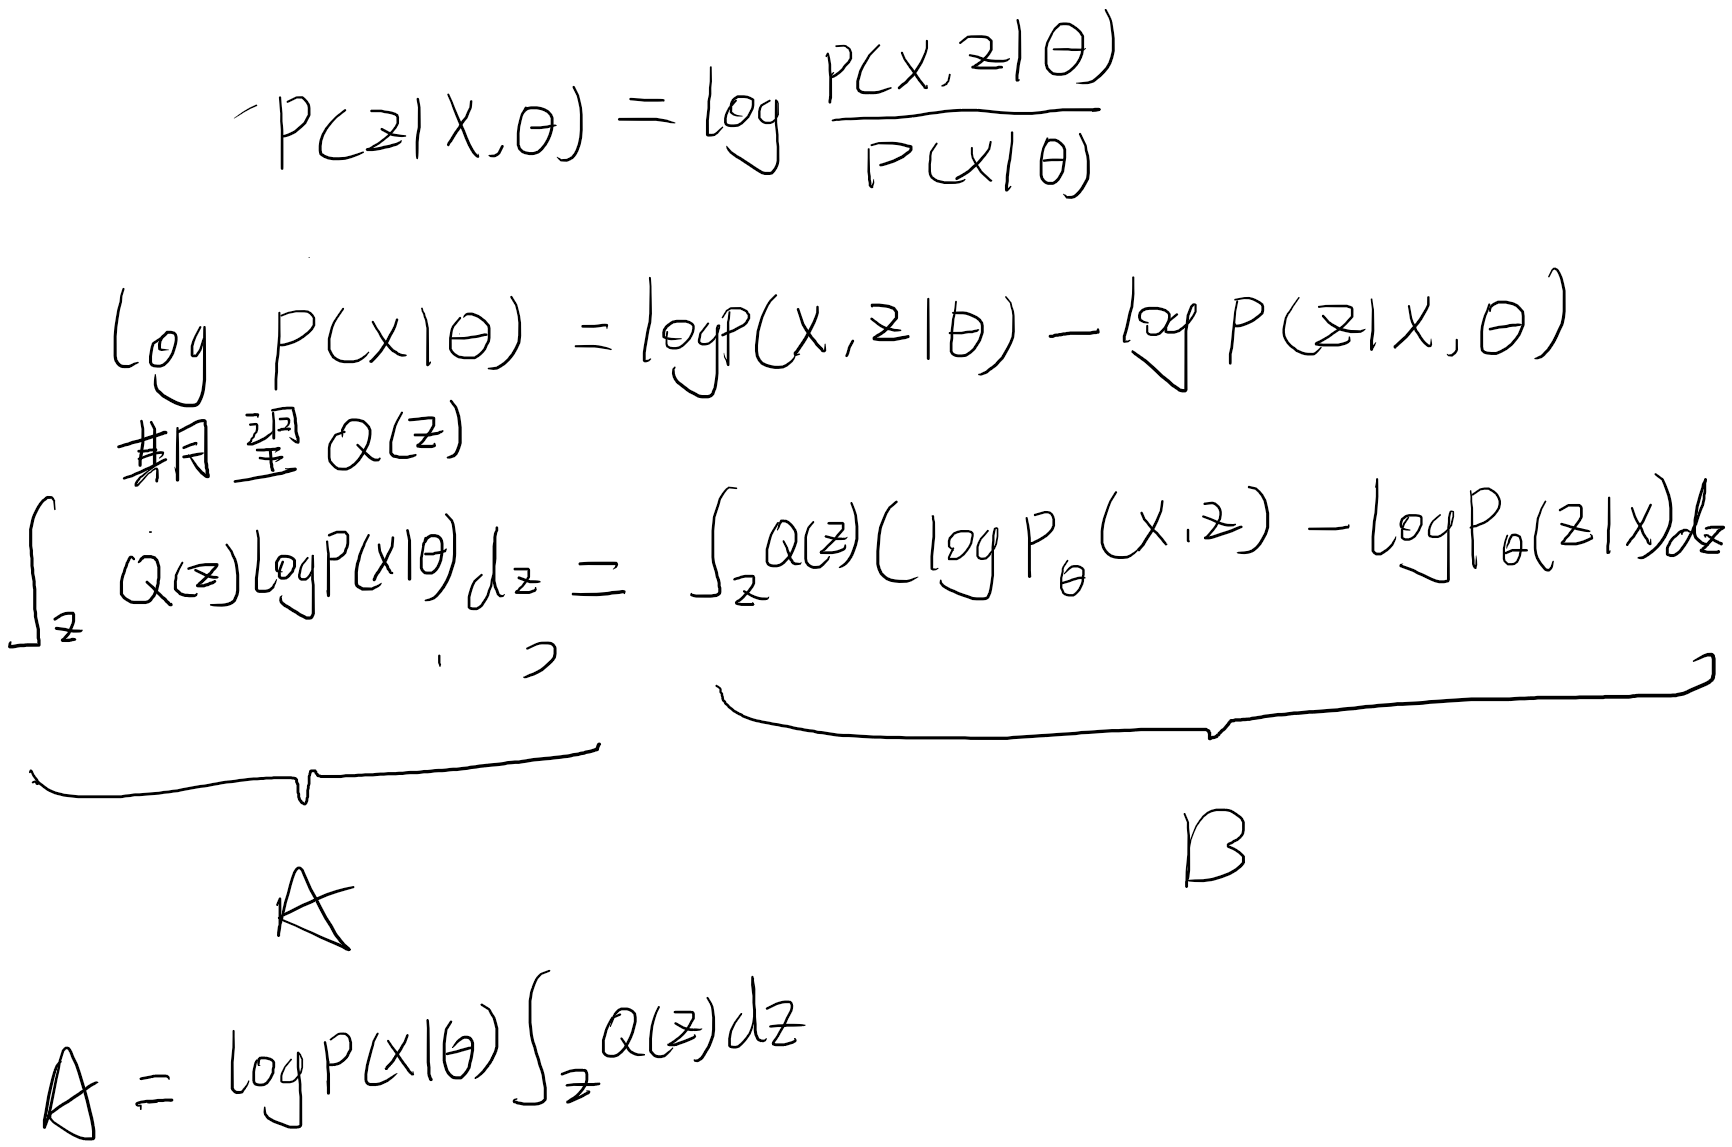 P(z|X,θ) = log P(X,z|θ) / P(X|θ)
log P(X|θ) = log P(X,z|θ) - log P(z|X,θ)
期望 Q(z)
∫_z Q(z) log P(X|θ) dz = ∫_z Q(z) (log P_θ(X,z) - log P_θ(z|X) dz
A
B
A = log P(X|θ) ∫_z Q(z) dz